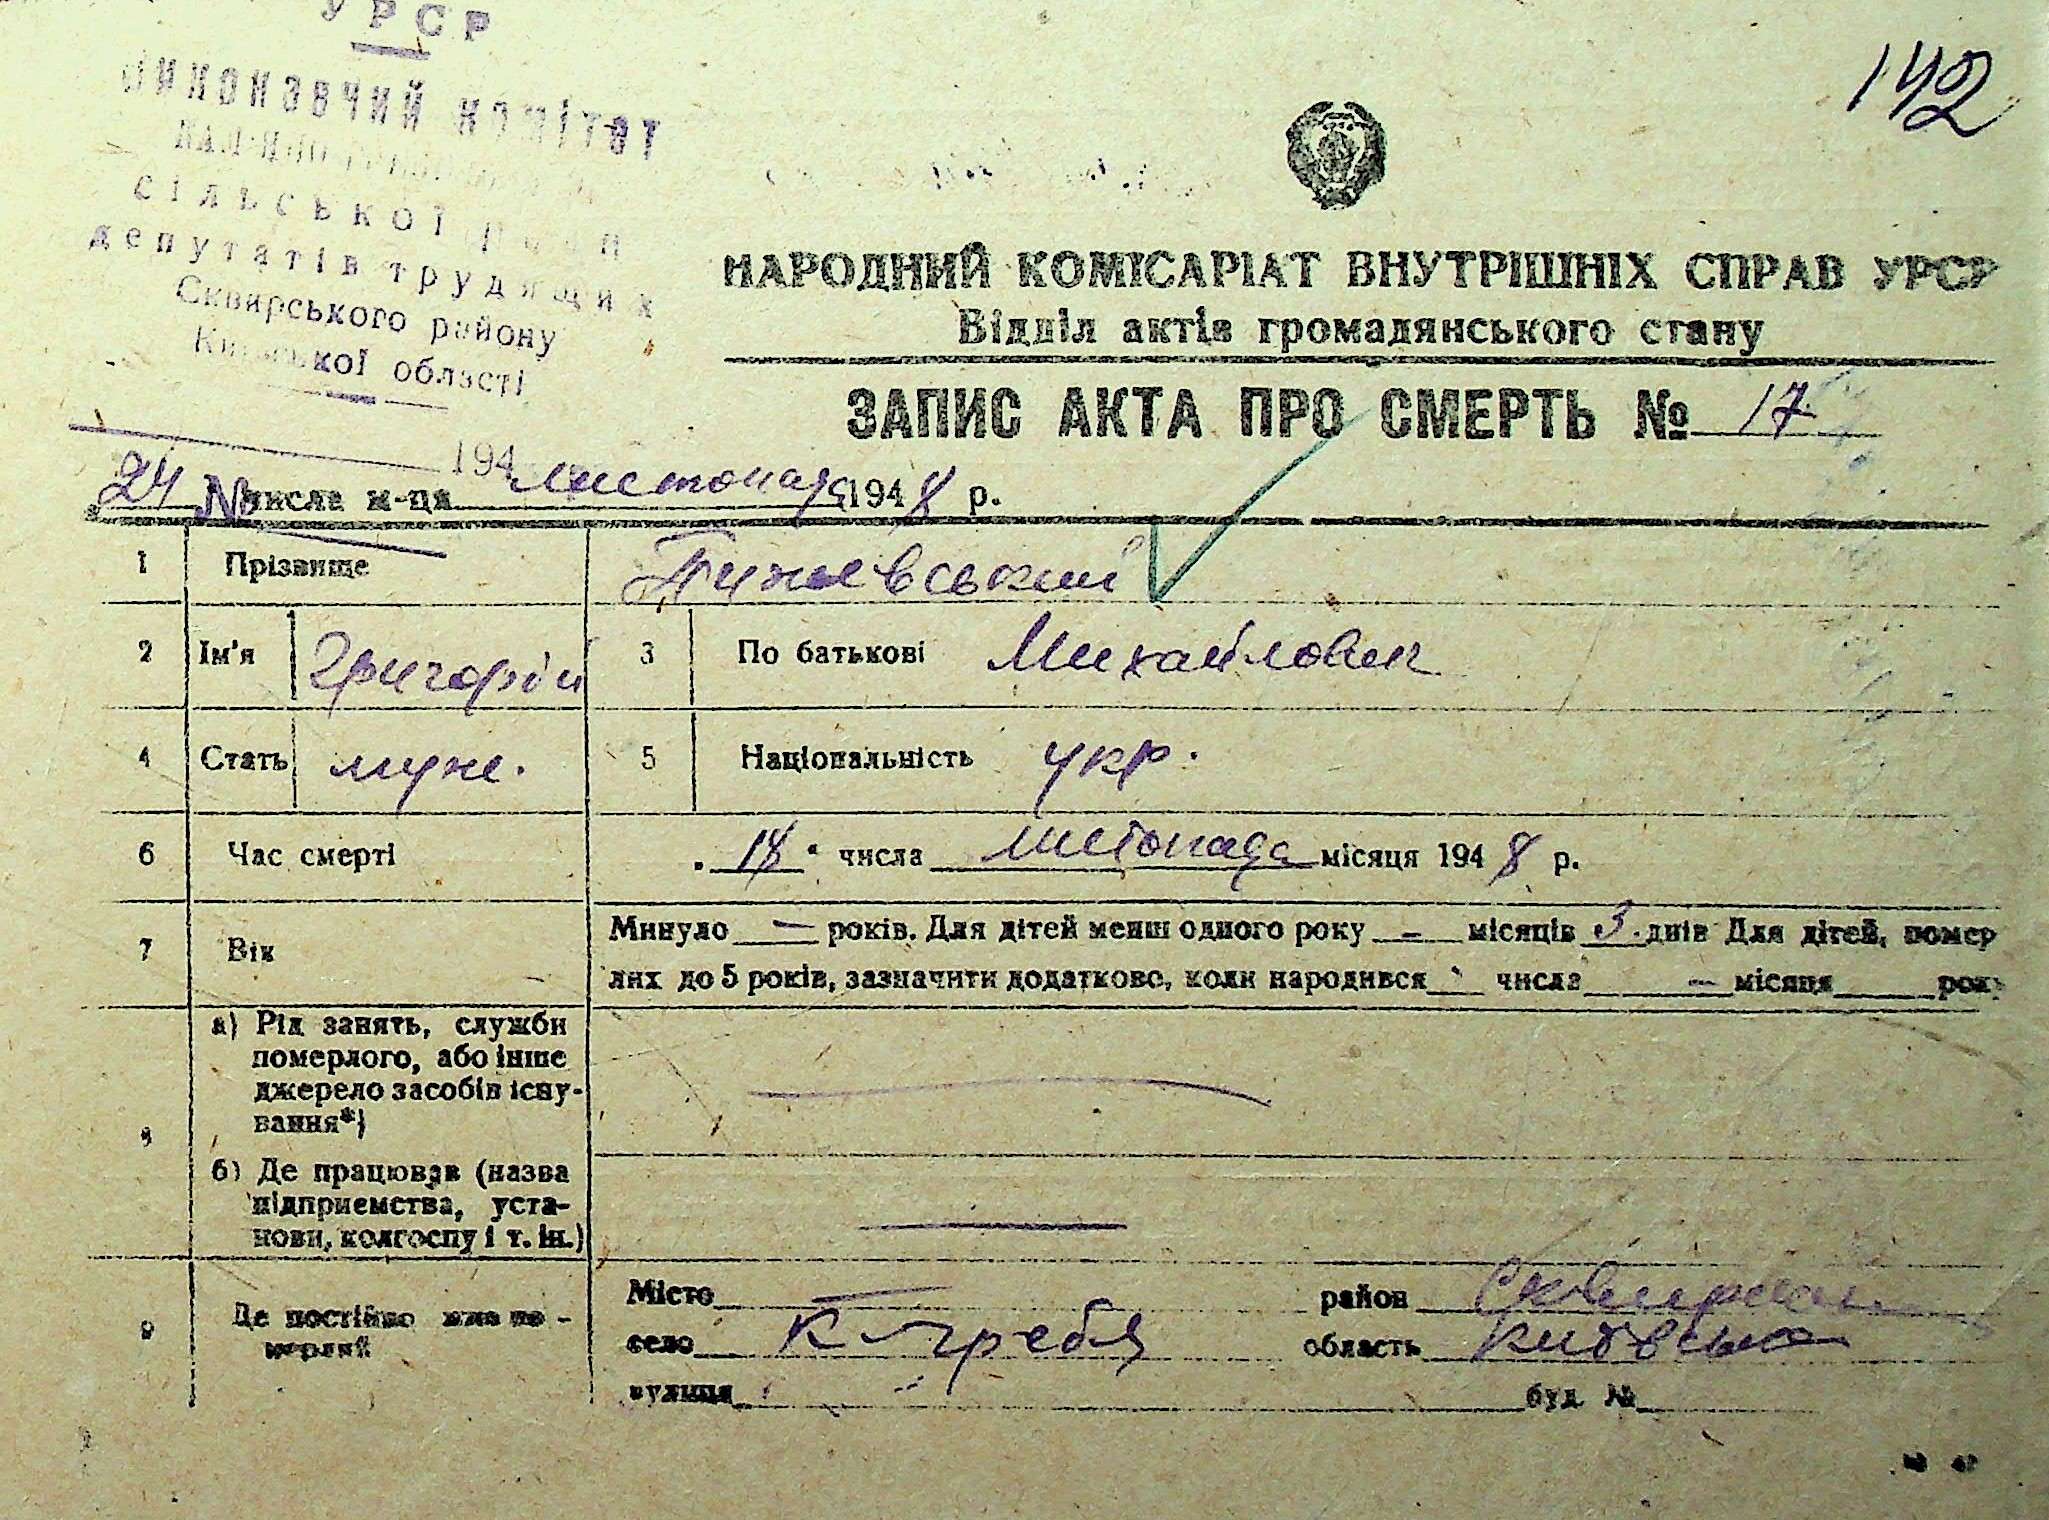 УРСР
ВИКОНАВЧИЙ КОМІТЕТ
сільської Ради
депутатів трудящих
Сквирського району
Київської області
194
142
НАРОДНИЙ КОМІСАРІАТ ВНУТРІШНІХ СПРАВ УРСР
Відділ актів громадянського стану
ЗАПИС АКТА ПРО СМЕРТЬ № 17
24 числа м-ця листопада 1948 р.
№
1 Прізвище
2 Ім'я Григорій 3 По батькові Михайлович
4 Стать муж. 5 Національність укр.
6 Час смерті „18“ числа листопада місяця 1948 р.
7 Вік Минуло — років. Для дітей менш одного року — місяців 3 днів Для дітей, помер
лих до 5 років, зазначити додатково, коли народився числа — місяця року
8 а) Рід занять, служби
померлого, або інше
джерело засобів існу-
вання*)
б) Де працював (назва
підприємства, уста-
нови, колгоспу і т. ін.)
9 Де постійно жив по-
мерлий
Місто — район Сквирський
село К-Гребля область Київська
вулиця буд. №